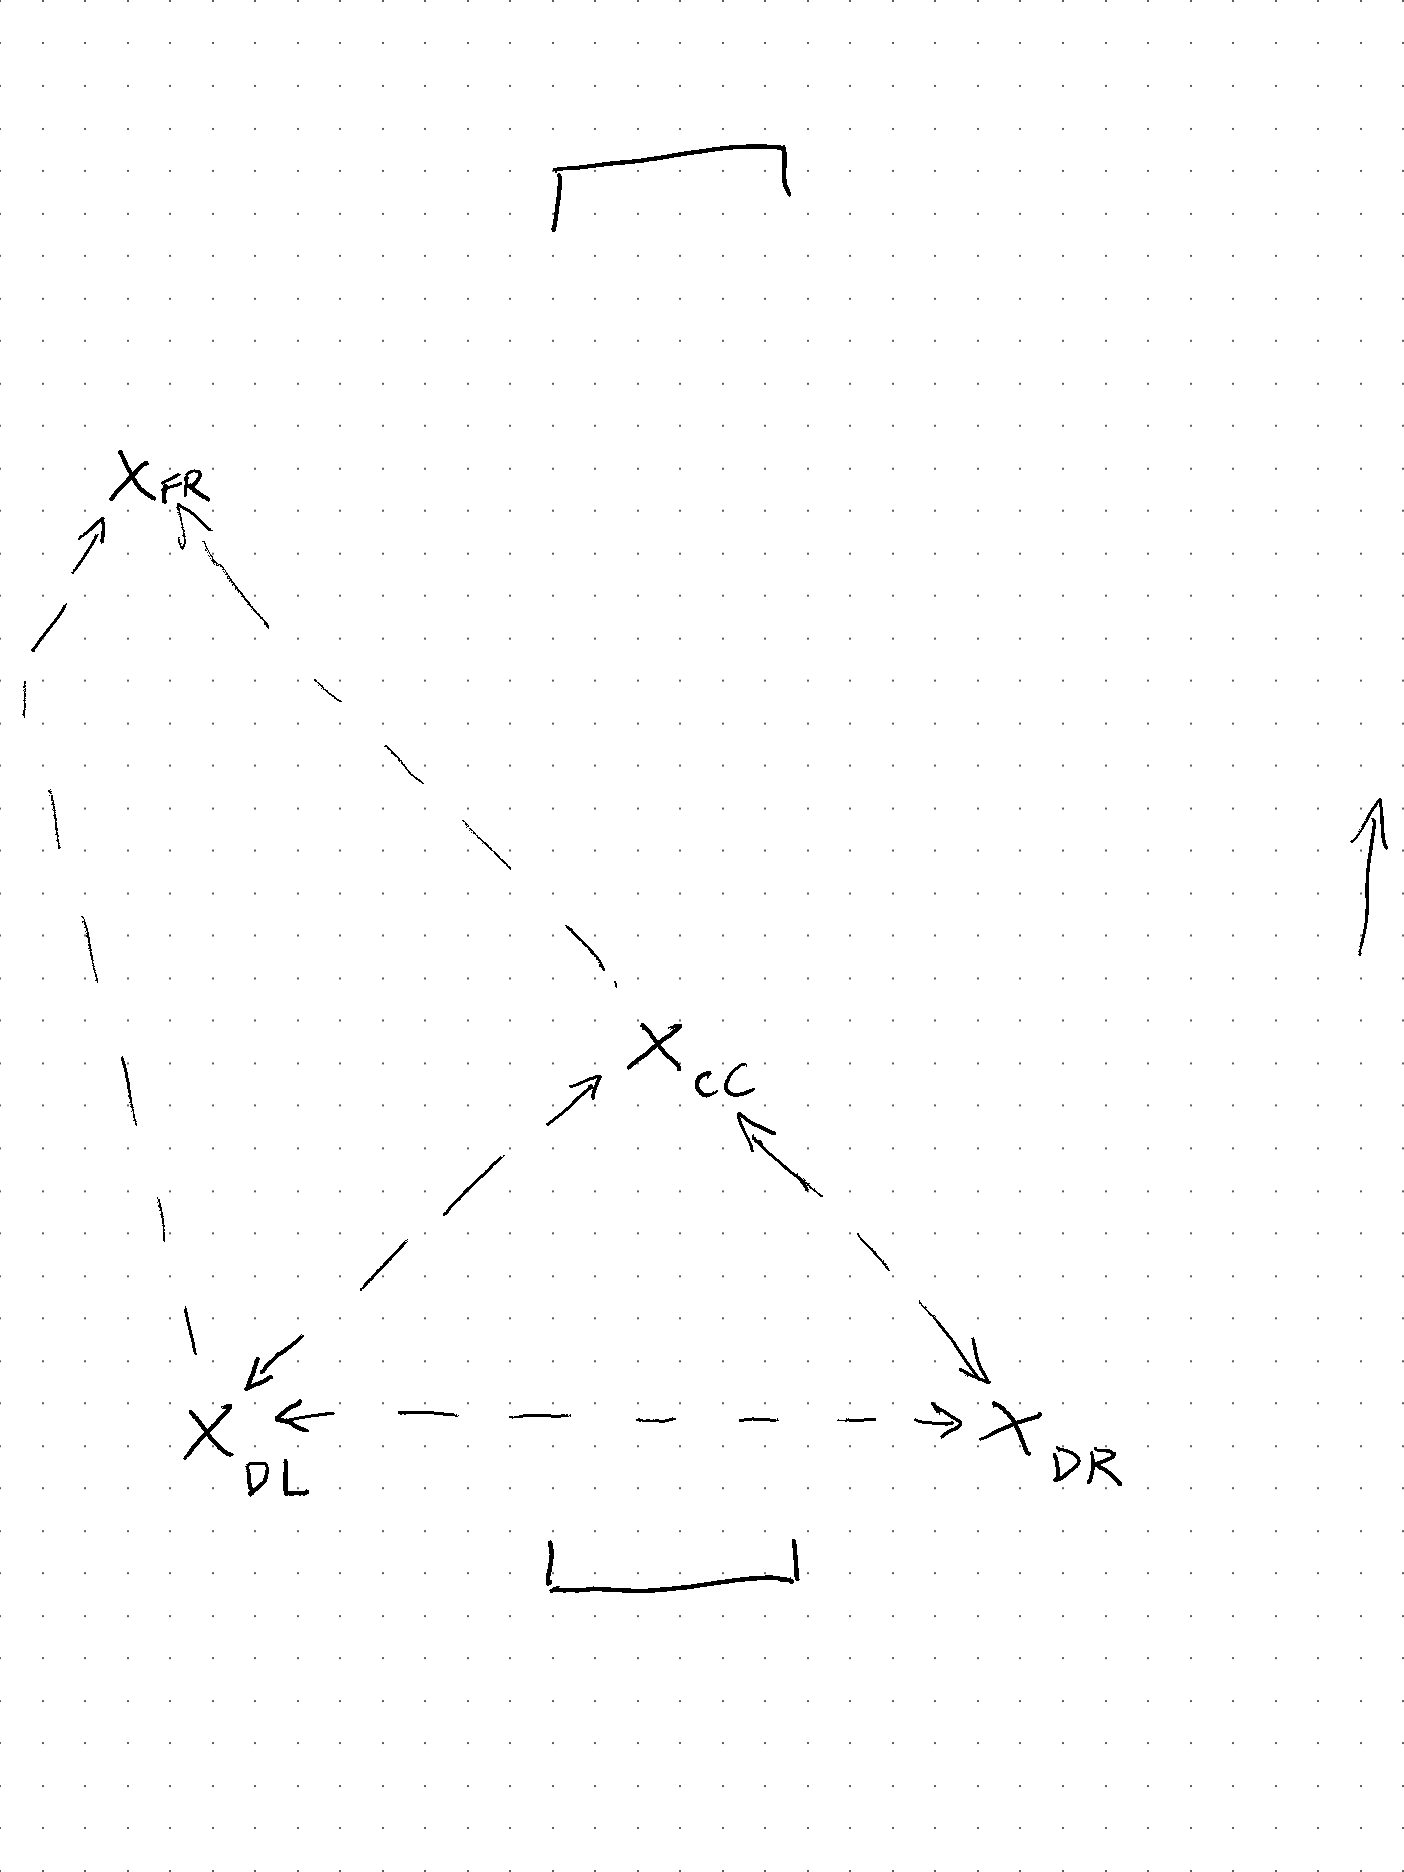 X FR
X CC
X DL
X DR